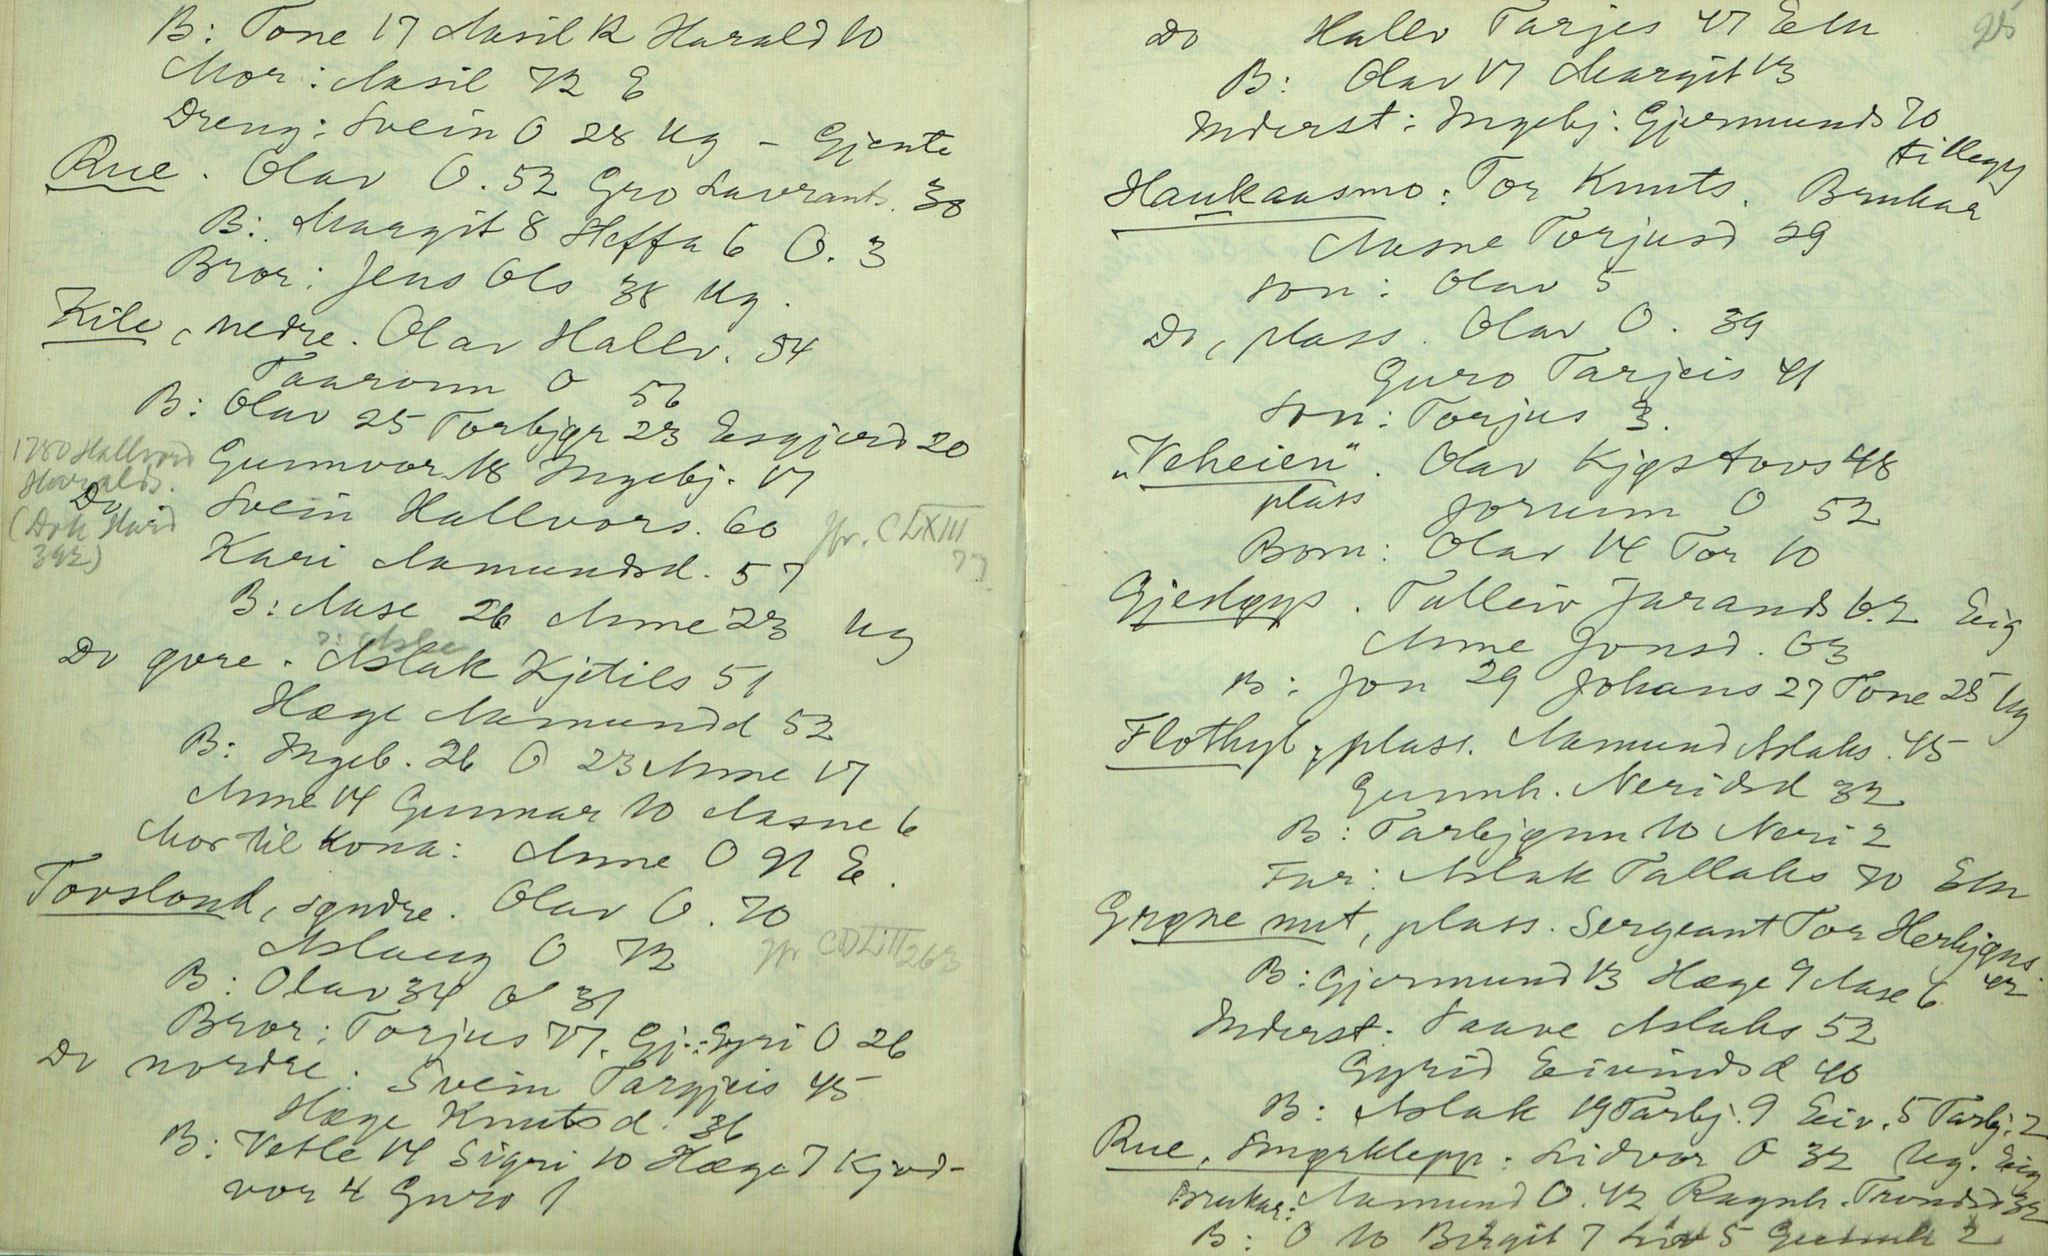 B: Tone 17 Aasil 12 Harald 10
Mor: Aasil 72 E
Dreng: Svein O 28 Ug - Gjente
Rue. Olav O. 52 Gro Lavrants. 38
B: Margit 8 Heffa 6 O. 3
Bror: Jens Ols 38 Ug.
Kile, nedre. Olav Hallv. 54
Taaronn O 56
B: Olav 25 Torbjør 23 Esgjerd 20
Gunnvor 18 Ingebj. 17
1780 Hallvord
Haralds.
(Dok Hard
392)
Do. Svein Hallvors. 60
jfr. CLXIII
77
Kari Aamundsd. 57
B: Aase 26 Anne 23 Ug
Do øvre. Aslak Kjetils 51
Hæge Aamundd 52
B: Ingeb. 26 O 23 Anne 17
Anne 14 Gunnar 10 Aasne 6
Mor til kona: Anne O 91 E.
Tovsland, søndre. Olav O. 70
Aslaug O 72
jfr CDLIII 263
B: Olav 34 O 31
Bror: Torjus 77. Gj.: Gyri O 26
Do nordre: Svein Targjeis 45
Hæge Knutsd. 36
B: Vetle 14 Sigri 10 Hæge 7 Kjød-
vor 4 Guro 1
25
Do Hallv Tarjes 47 Elm
B: Olav 17 Margit 13
Inderst: Ingebj. Gjermunds 70
tillegg
Haukaasmo: Tor Knuts. Brukar
Aasne Torjusd 29
Son: Olav 5
Do, plass. Olav O. 39
Guro Tarjeis 41
Son: Torjus 3.
"Veheien". Olav Kjøstovs 48
plass Jorunn O 52
Born: Olav 14 Tor 10
Gjesløys. Talleiv Jarands 62 Eig
Anne Jonsd. 63
B: Jon 29 Johans 27 Tone 25 Ug
Flothyl, plass. Aamund Aslaks. 45
Gunnh. Neridsd 32
B: Tarbjønn 10 Neri 2
Far: Aslak Tallaks 70 Elm
Grøne nut, plass. Sergeant Tor Herbjøns.
42
B: Gjermund 13 Hæge 9 Aase 6
Inderst: Taave Aslaks 52
Gyrid Eivindsd 40
B: Aslak 19 Tarbj. 9 Eiv. 5 Tarbj. 2
Rue, Smørklepp: Lidvor O 32 Ug. Eig
Brukar: Aamund O. 42 Ragnh. Trondsd 32
B: O 10 Birgit 7 Liv 5 Gunnh 2